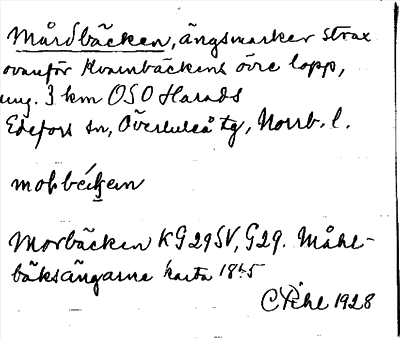 Mårdbäcken, ängsmarker strax
ovanför Kvarnbäckens övre lopp,
ung. 3 km OSO Harads
Edefors sn, Överluleå tg, Norrb. l.
Morbäcken KG29SV, G29. Måhl-
bäksängarne karta 1845
C Pihl 1928